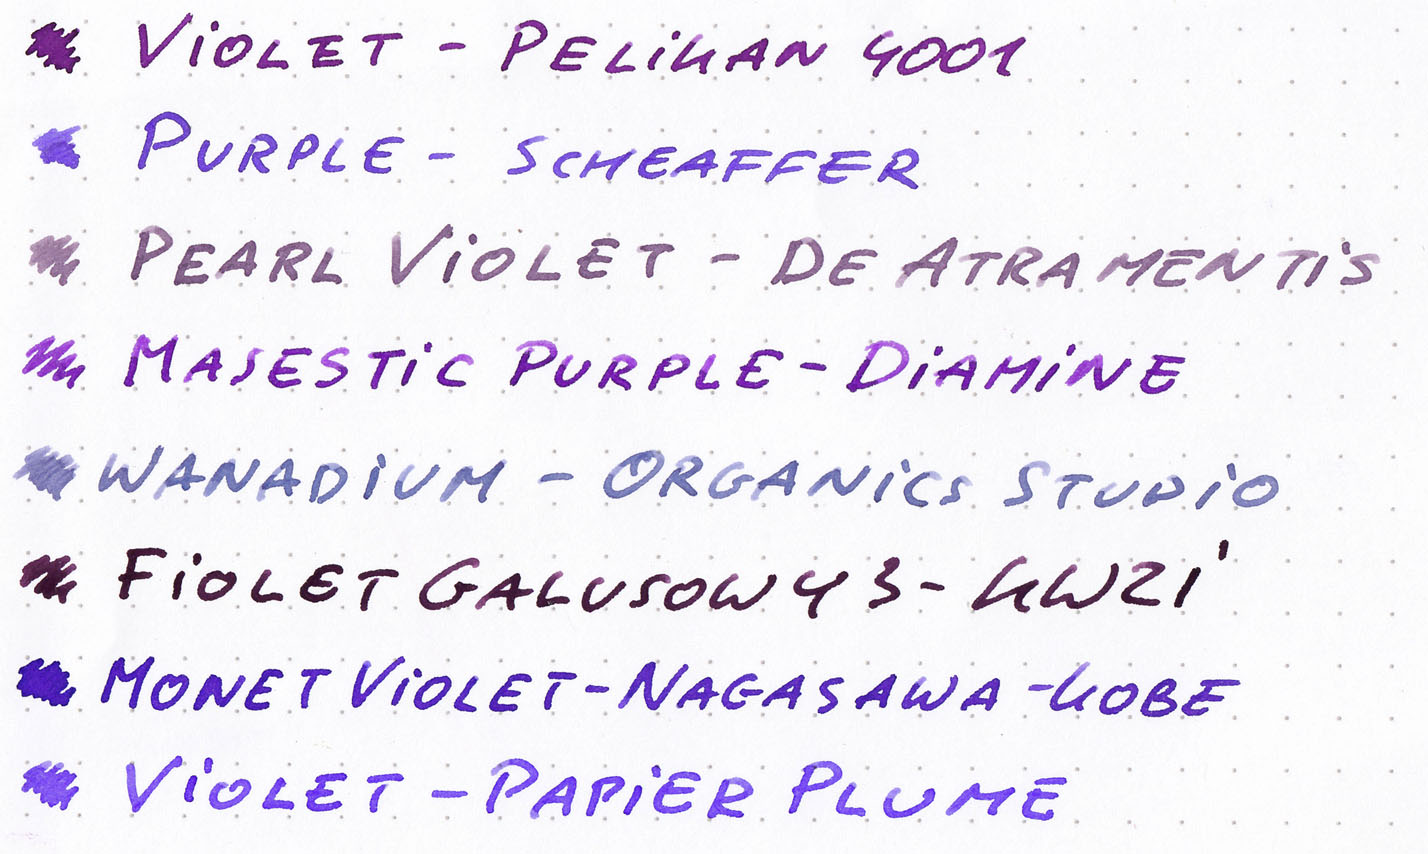 VIOLET - PELIKAN 4001
PURPLE - SCHEAFFER
PEARL VIOLET - DE ATRAMENTIS
MAJESTIC PURPLE - DIAMINE
WANADIUM - ORGANICS STUDIO
FIOLET GALUSOWY 3 - KWZI
MONET VIOLET - NAGASAWA - KOBE
VIOLET - PAPIER PLUME